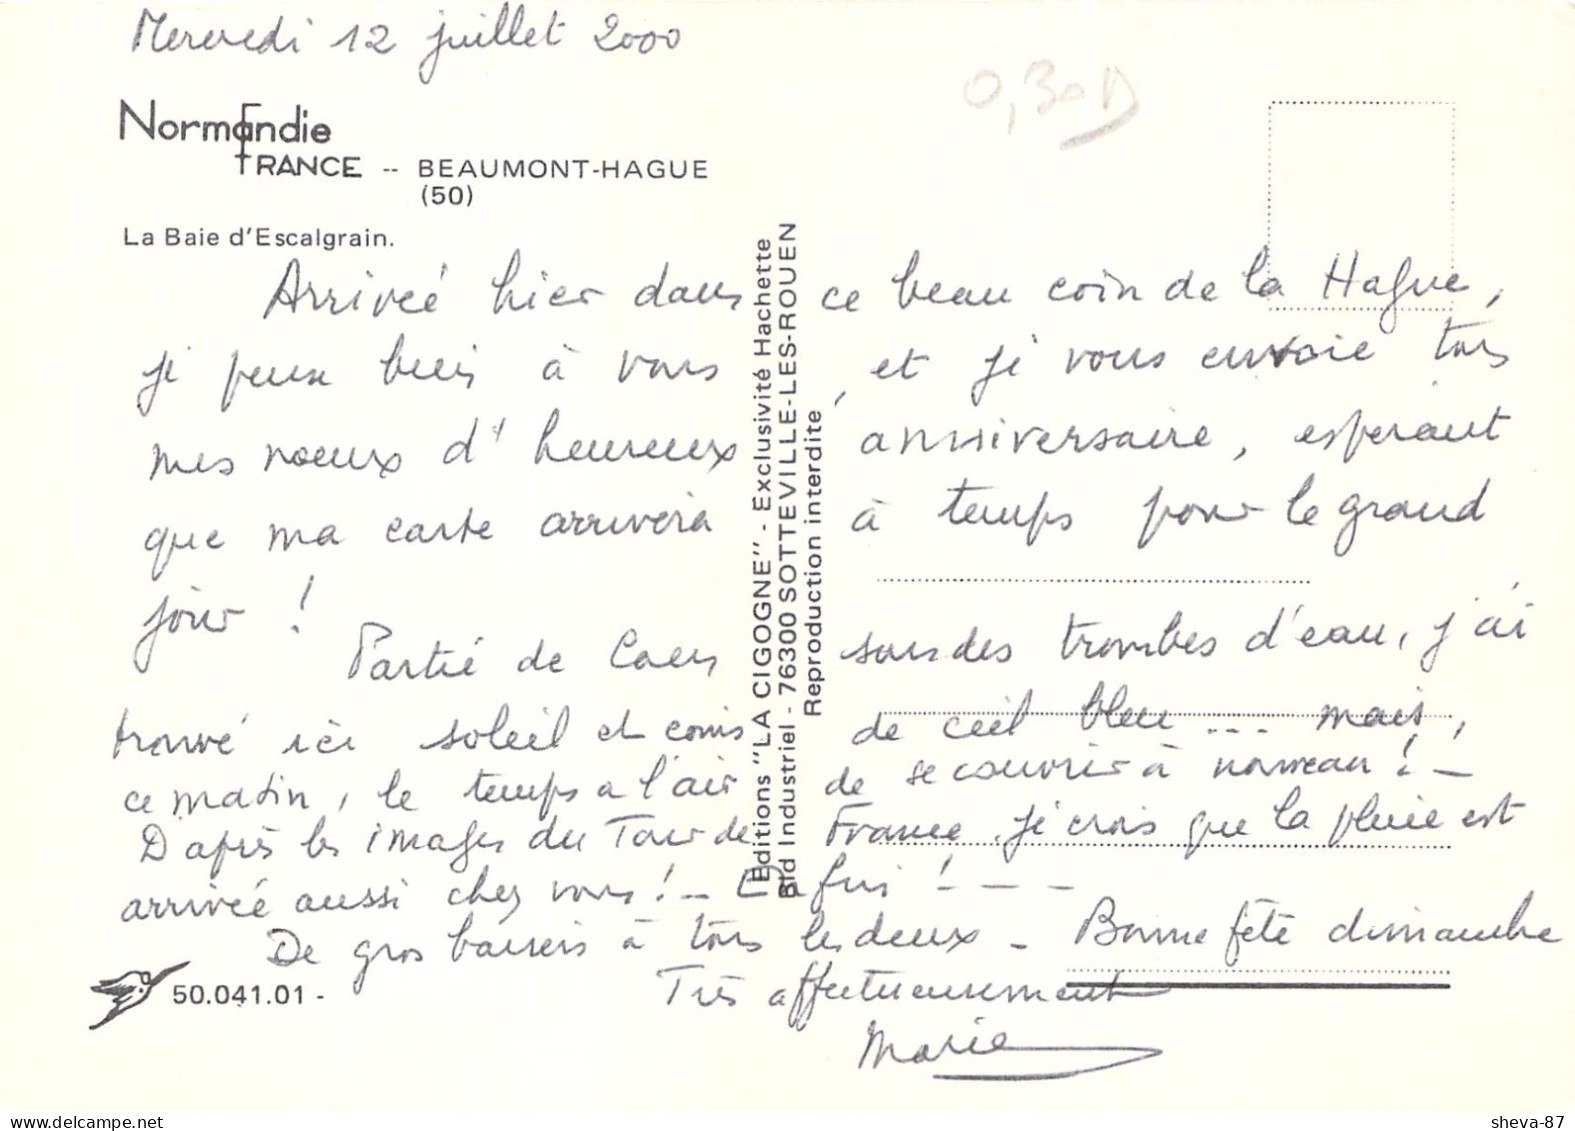 Mercredi 12 juillet 2000
0,30 D
Normandie
FRANCE -- BEAUMONT-HAGUE
(50)
La Baie d'Escalgrain.
Arrivée hier dans ce beau coin de la Hague,
je peux bien à vous, et je vous envoie tous
mes voeux d'heureux anniversaire, espérant
que ma carte arrivera à temps pour le grand
jour !
Partie de Caen sous des trombes d'eau, j'ai
trouvé ici soleil et coins de ciel bleu ... mais,
ce matin, le temps a l'air de se couvrir à nouveau ! -
D'après les images du Tour de France, je crois que la pluie est
arrivée aussi chez vous ! -
De gros baisers à tous les deux - Bonne fête dimanche
Très affectueusement
Marie
50.041.01 -
Editions "LA CIGOGNE" - Exclusivité Hachette
Bld Industriel - 76300 SOTTEVILLE-LES-ROUEN
Reproduction interdite
sheva-87